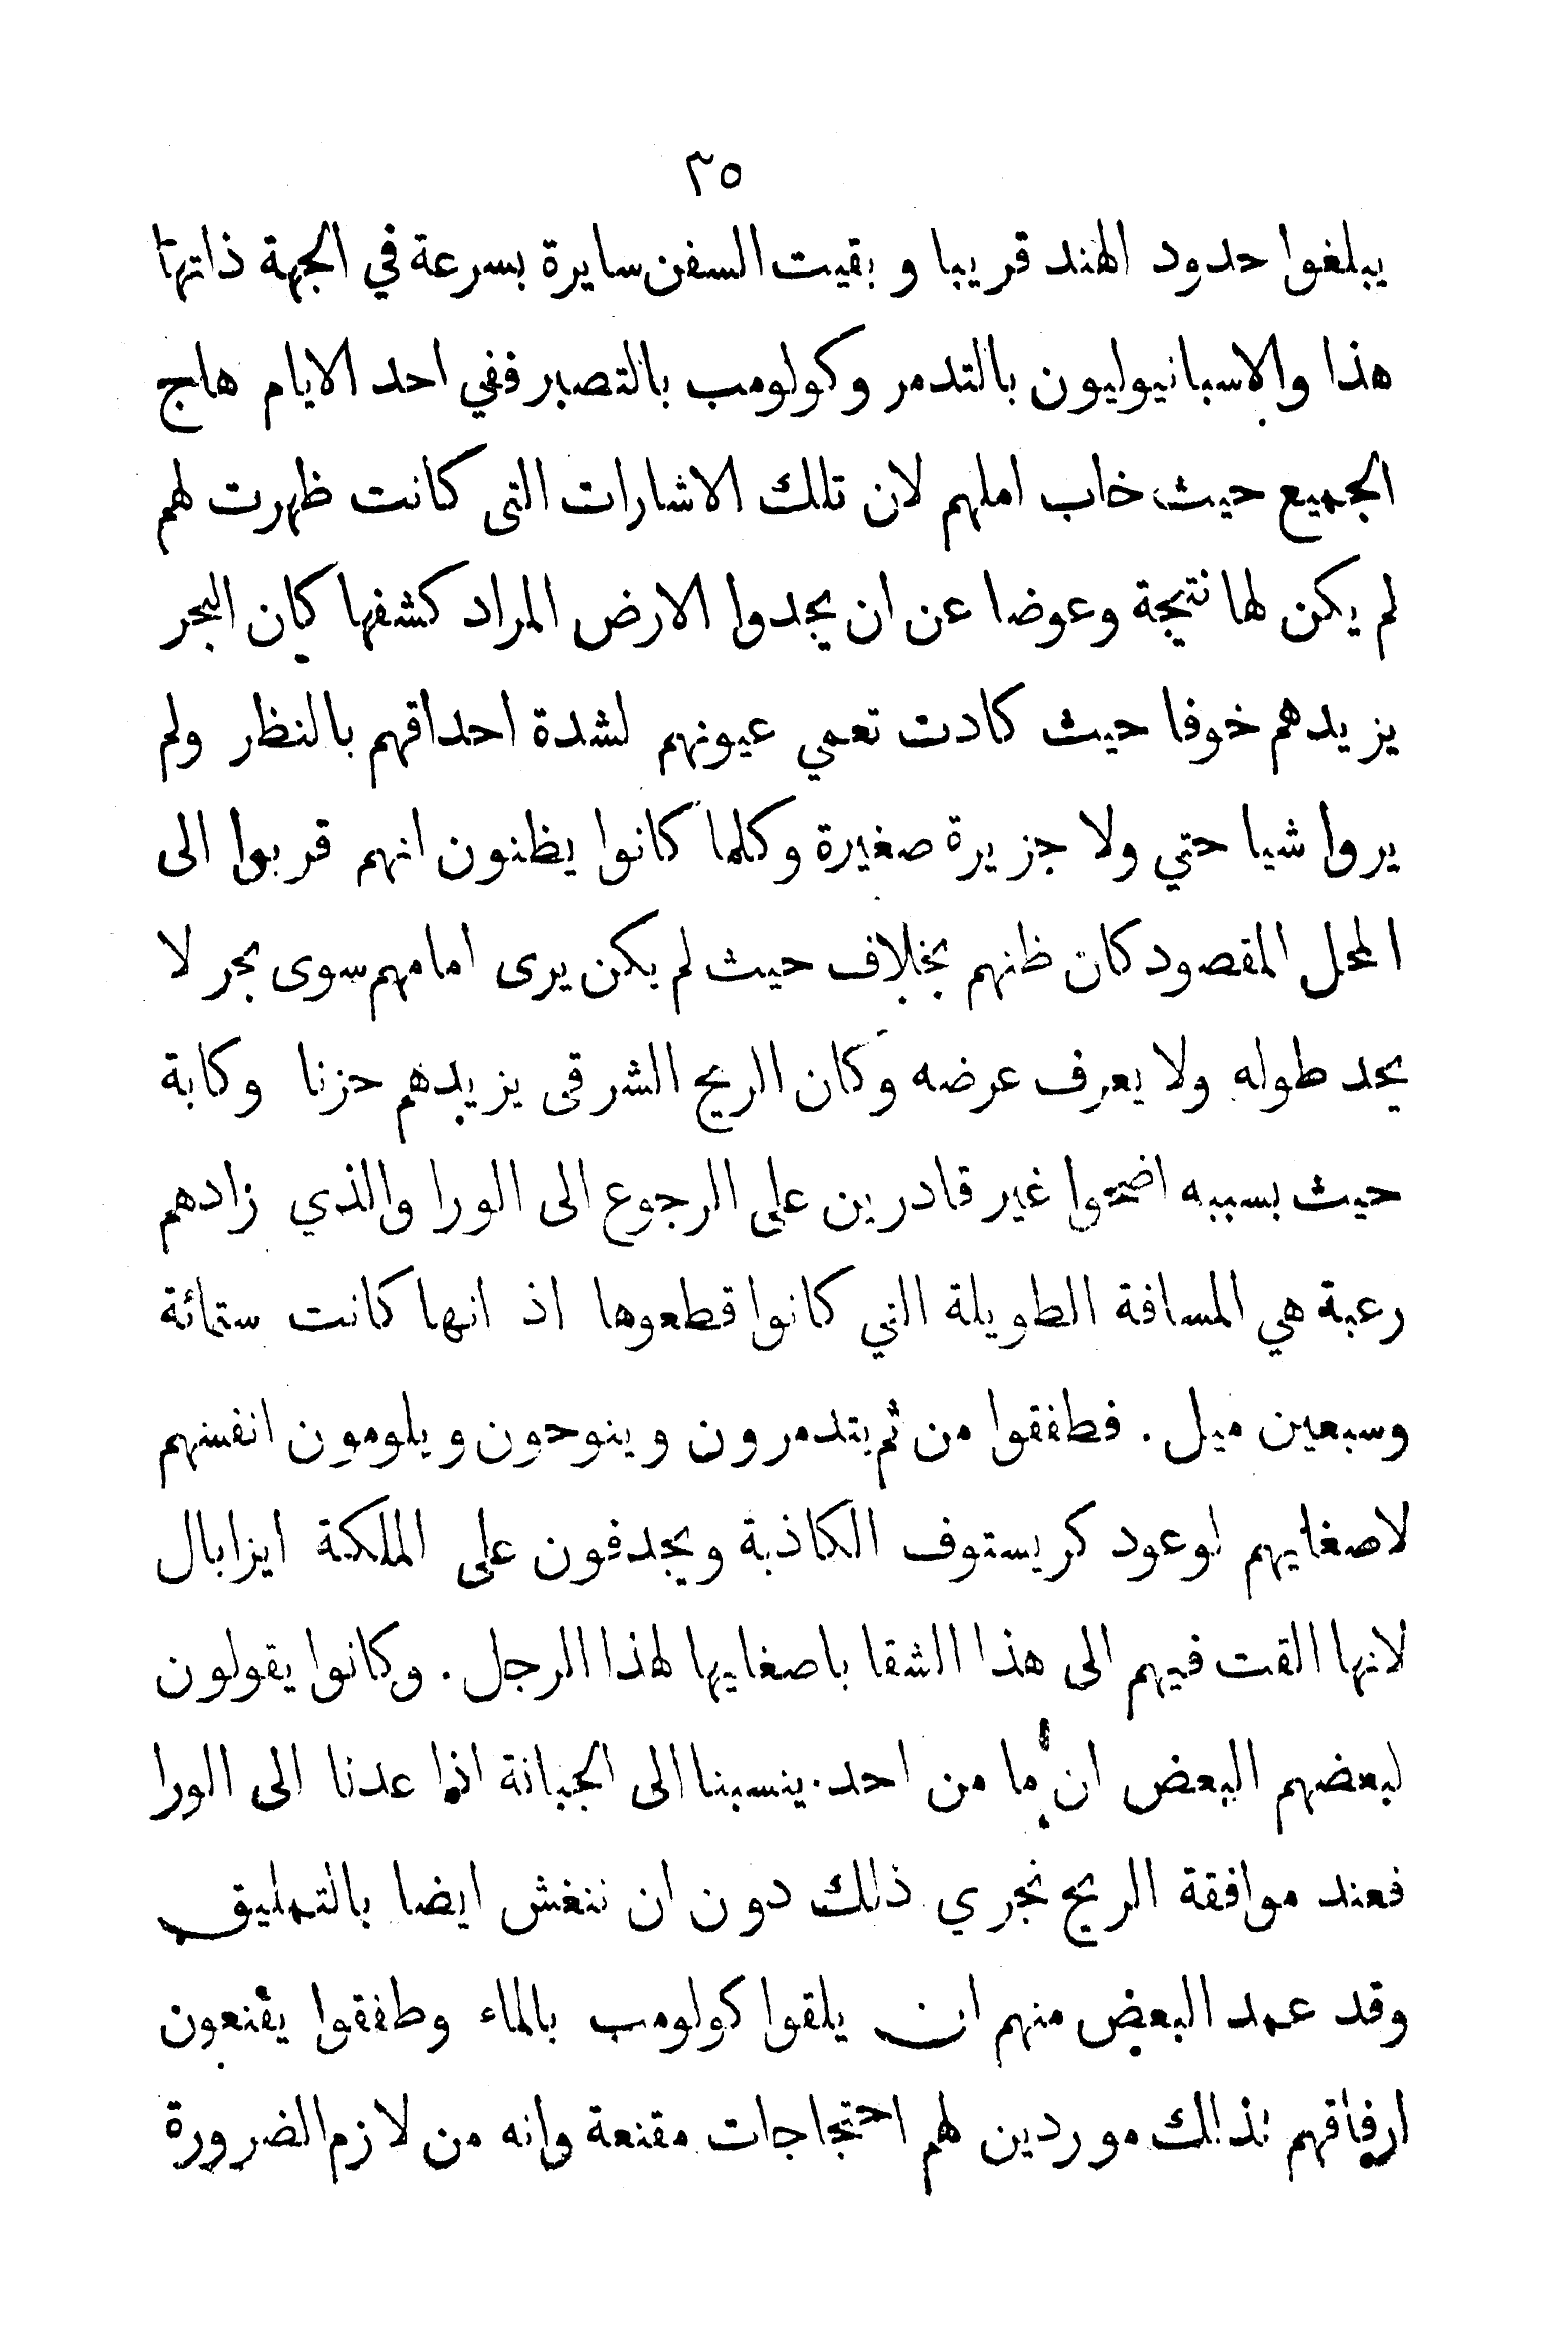 ٣٥
يبلغوا حدود الهند قريبا وبقيت السفن سايرة بسرعة في الجهة ذاتها
هذا والاسبانيوليون بالتدمر وكولومب بالتصبر ففي احد الايام هاج
الجميع حيث خاب املهم لان تلك الاشارات التى كانت ظهرت لهم
لم يكن لها نتيجة وعوضا عن ان يجدوا الارض المراد كشفها كان البحر
يزيدهم خوفا حيث كادت تعمي عيونهم لشدة احداقهم بالنظر ولم
يروا شيا حتي ولا جزيرة صغيرة وكلما كانوا يظنون انهم قربوا الى
المحل المقصود كان ظنهم بخلاف حيث لم يكن يرى امامهم سوى بحر لا
يحد طوله ولا يعرف عرضه وكان الريح الشرقى يزيدهم حزنا وكابة
حيث بسببه اضحوا غير قادرين على الرجوع الى الورا والذي زادهم
رعبة هي المسافة الطويلة التي كانوا قطعوها اذ انها كانت ستمائة
وسبعين ميل . فطفقوا من ثم يتدمرون وينوحون ويلومون انفسهم
لاصغايهم لوعود كريستوف الكاذبة ويجدفون على الملكة ايزابال
لانها القت فيهم الى هذا الشقا باصغايها لهذا الرجل . وكانوا يقولون
لبعضهم البعض ان ما من احد ينسبنا الى الجبانة اذا عدنا الى الورا
فعند موافقة الريح نجري ذلك دون ان ننغش ايضا بالتمليق
وقد عمد البعض منهم ان يلقوا كولومب بالماء وطفقوا يقنعون
ارفاقهم بذالك موردين لهم احتجاجات مقنعة وانه من لازم الضرورة